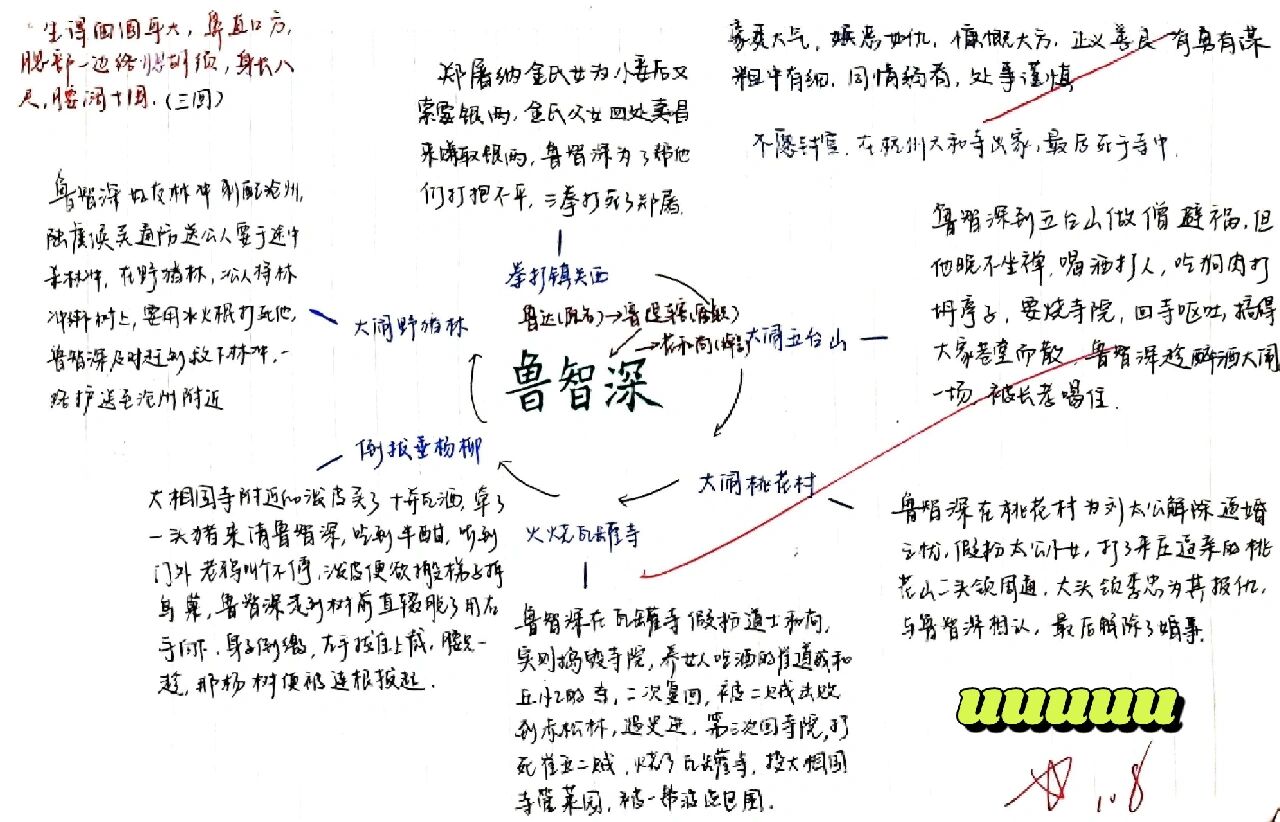 生得面圆耳大，鼻直口方，
腮部一边络腮胡须，身长八
尺，腰阔十围．(三回)
豪爽大气，嫉恶如仇，慷慨大方，正义善良 有勇有谋
粗中有细，同情弱者，处事谨慎
不愿封官．在杭州六和寺出家，最后死于寺中．
郑屠纳金氏女为小妾后又
索要银两，金氏父女四处卖唱
来赚取银两，鲁智深为了帮他
们打抱不平，三拳打死了郑屠．
拳打镇关西
鲁达(原名)→鲁提辖(官职)
→花和尚(绰号)
鲁智深
大闹五台山
鲁智深到五台山做僧避祸，但
他既不坐禅，喝酒打人，吃狗肉打
坍亭子，要烧寺院，回寺呕吐，搞得
大家卷堂而散，鲁智深趁醉酒大闹
一场，被长老喝住．
大闹桃花村
鲁智深在桃花村为刘太公解除逼婚
之忧，假扮太公小女，打了来庄逼亲的桃
花山二头领周通，大头领李忠为其报仇，
与鲁智深相认，最后解除了婚事．
火烧瓦罐寺
鲁智深在瓦罐寺假扮道士和尚，
实则捣毁寺院，养女人吃酒的崔道成和
丘小乙的寺，二次复回，被二贼击败
到赤松林，遇史进，第三次回寺院，打
死崔丘二贼，烧了瓦罐寺，投大相国
寺管菜园，被一帮泼皮包围．
倒拔垂杨柳
大相国寺附近的泼皮买了十瓶酒，牵了
一头猪来请鲁智深，吃到半酣，听到
门外老鸦叫个不停，泼皮便欲搬梯上拆
鸟巢，鲁智深走到树前直裰脱了用右
手向下，身子倒缴，左手拔住上截，腰只一
趁，那杨树便被连根拔起．
大闹野猪林
鲁智深好友林冲刺配沧州，
陆虞候买通防送公人要于途中
杀林冲，在野猪林，公人将林
冲绑树上，要用水火棍打死他，
鲁智深及时赶到救下林冲，一
路护送至沧州附近
uuuuuu
1.8